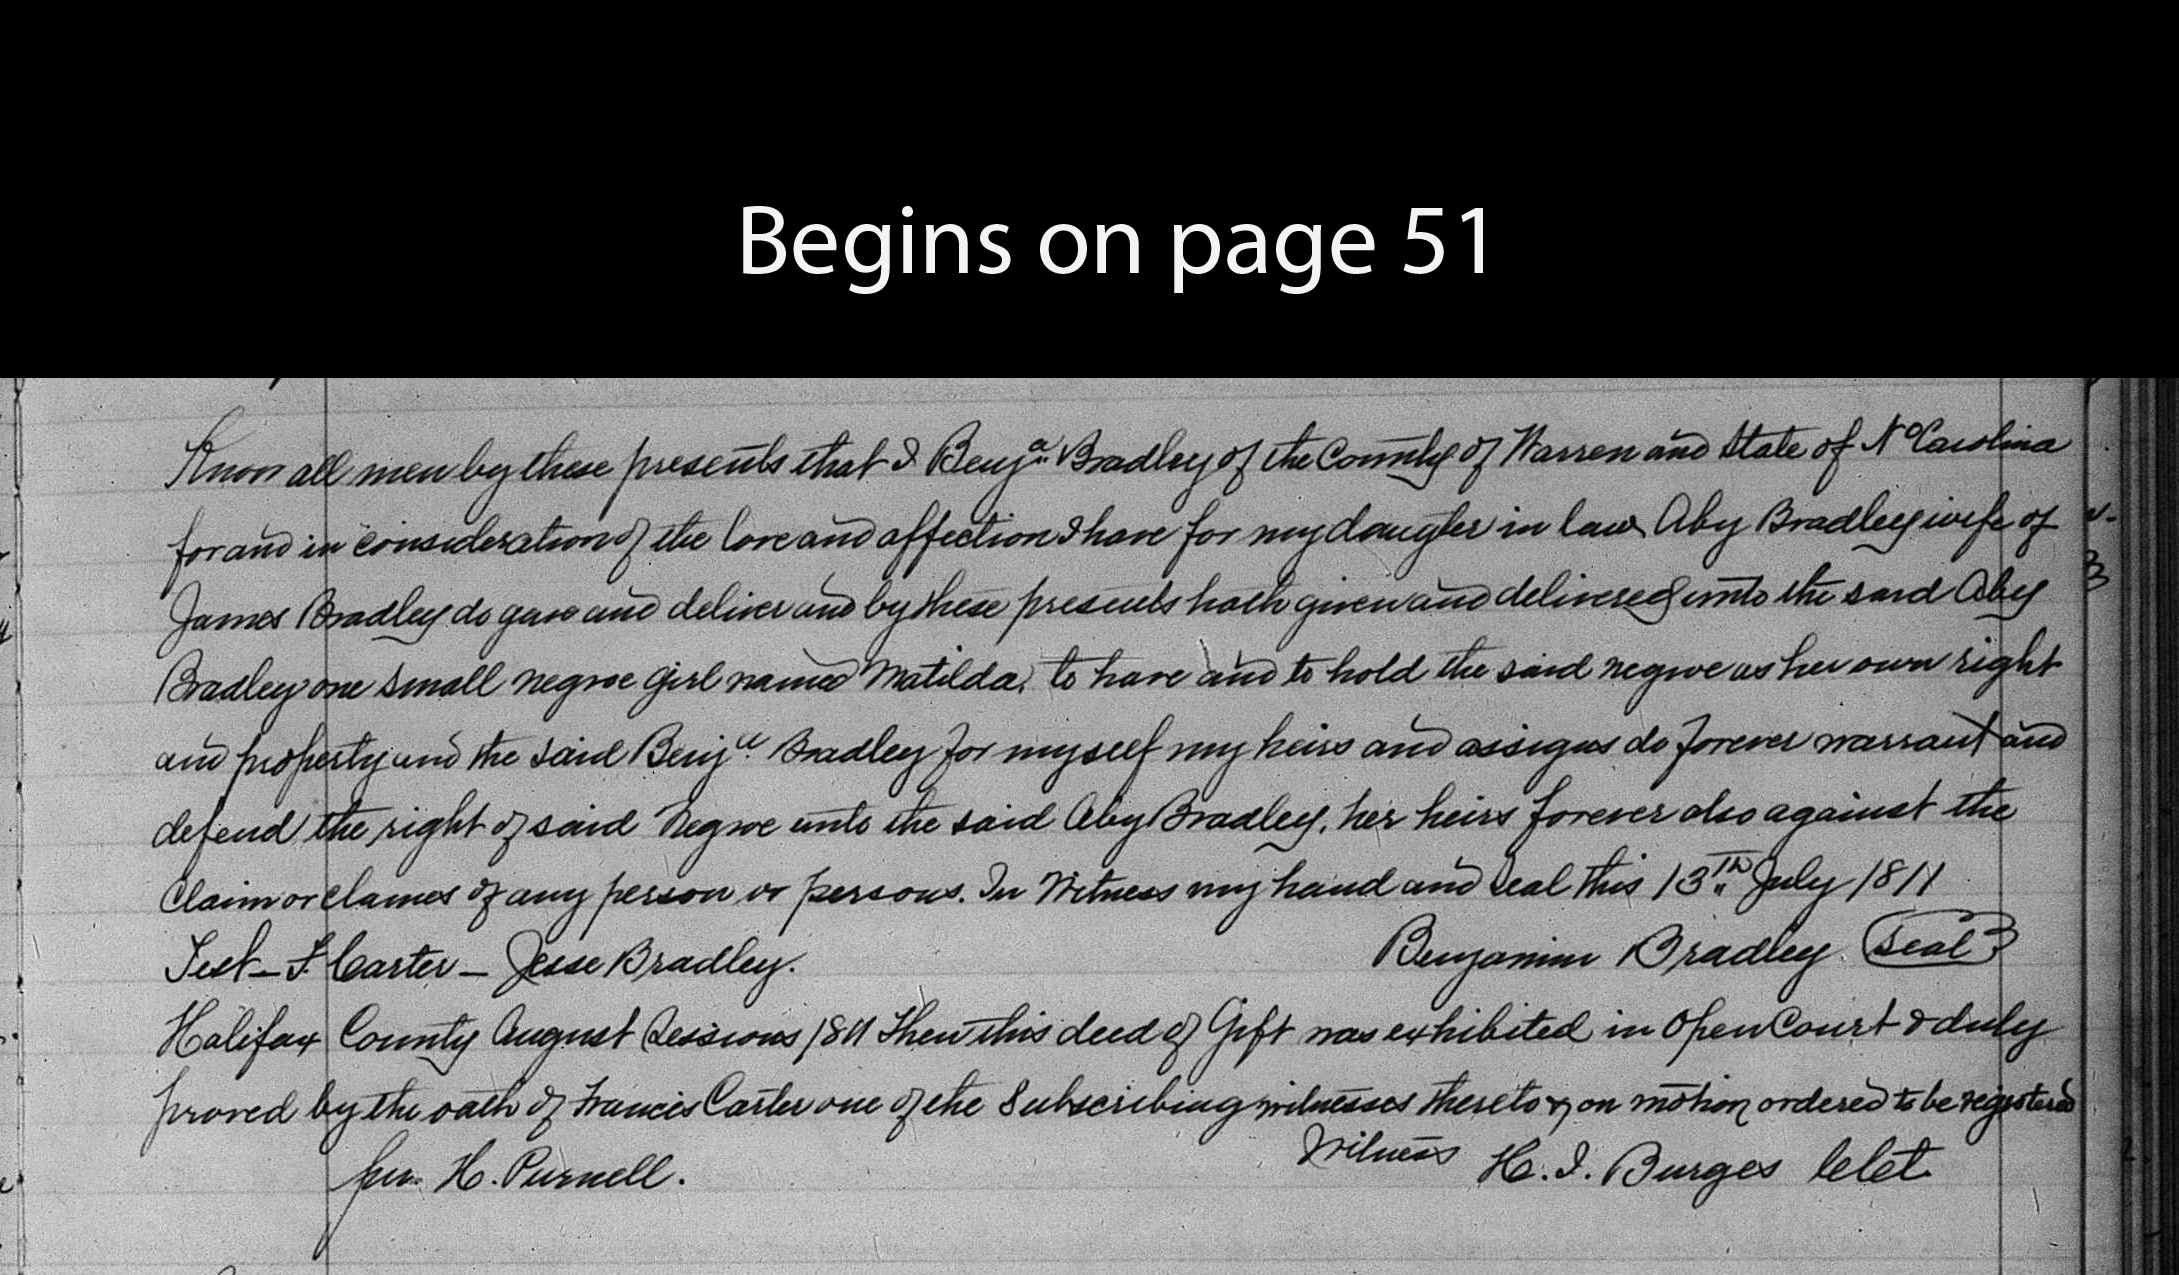 Begins on page 51
Know all men by these presents that I Benja. Bradley of the County of Warren and State of No Carolina
for and in consideration of the love and affection I have for my daugter in law Aby Bradley wife of
James Bradley do gave and deliver and by these presents hath given and delivered unto the said Aby
Bradley one small negroe girl named Matilda, to have and to hold the said negroe as her own right
and property and the said Benja Bradley for myself my heirs and assigns do forever warrant and
defend the right of said Negroe unto the said Aby Bradley, her heirs forever also against the
Claim or clames of any person or persons. In Witness my hand and Seal this 13TH July 1811
Test - F. Carter - Jesse Bradley.
Benjamin Bradley Seal
Halifax County August Sessions 1811 Then this deed of Gift was exhibited in Open Court & duly
proved by the oath of Francis Carter one of the Subscribing witnesses thereto & on motion ordered to be registered
per. H. Purnell.
Witness H. I. Burges Clct